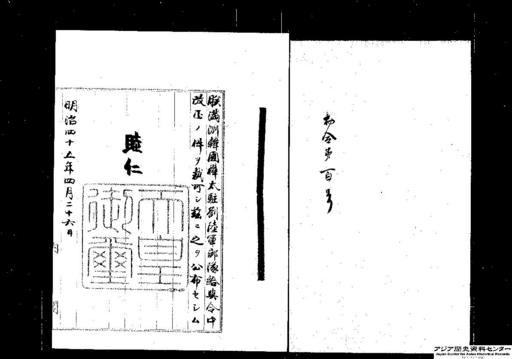 勅令第百号
朕満洲韓国樺太駐劄陸軍部隊給与令中
改正ノ件ヲ裁可シ茲ニ之ヲ公布セシム
睦仁
天皇
御璽
明治四十五年四月二十六日
アジア歴史資料センター
Japan Center for Asian Historical Records